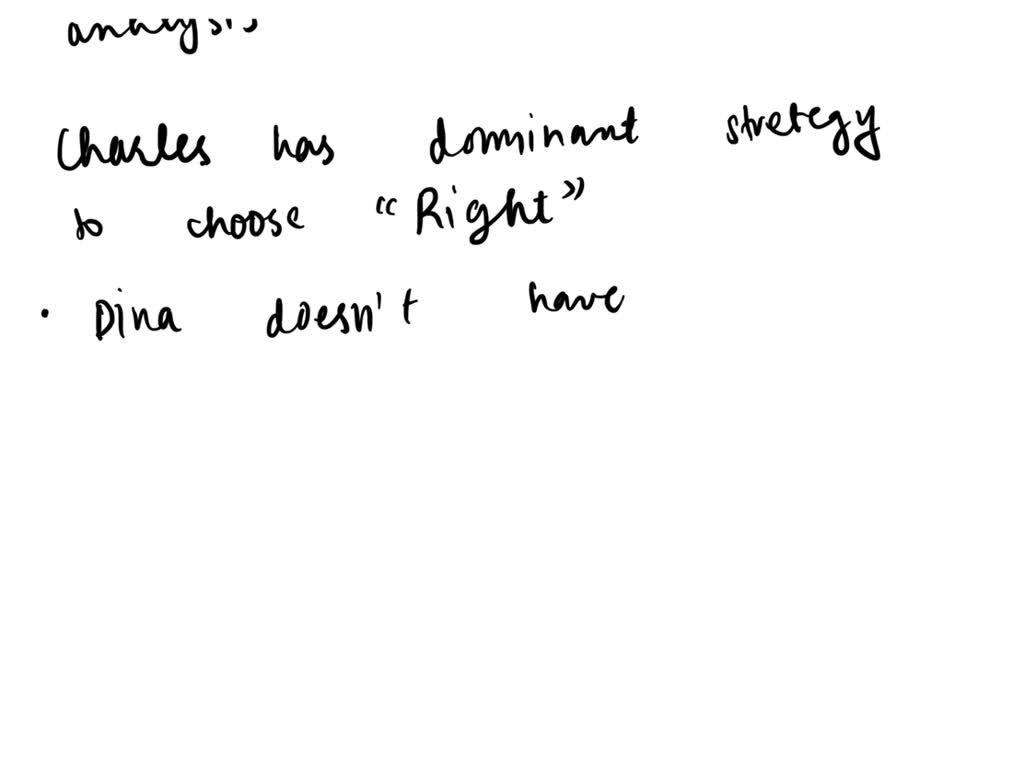 analysis
Charles has dominant stretegy
to choose "Right"
• Dina doesn't have